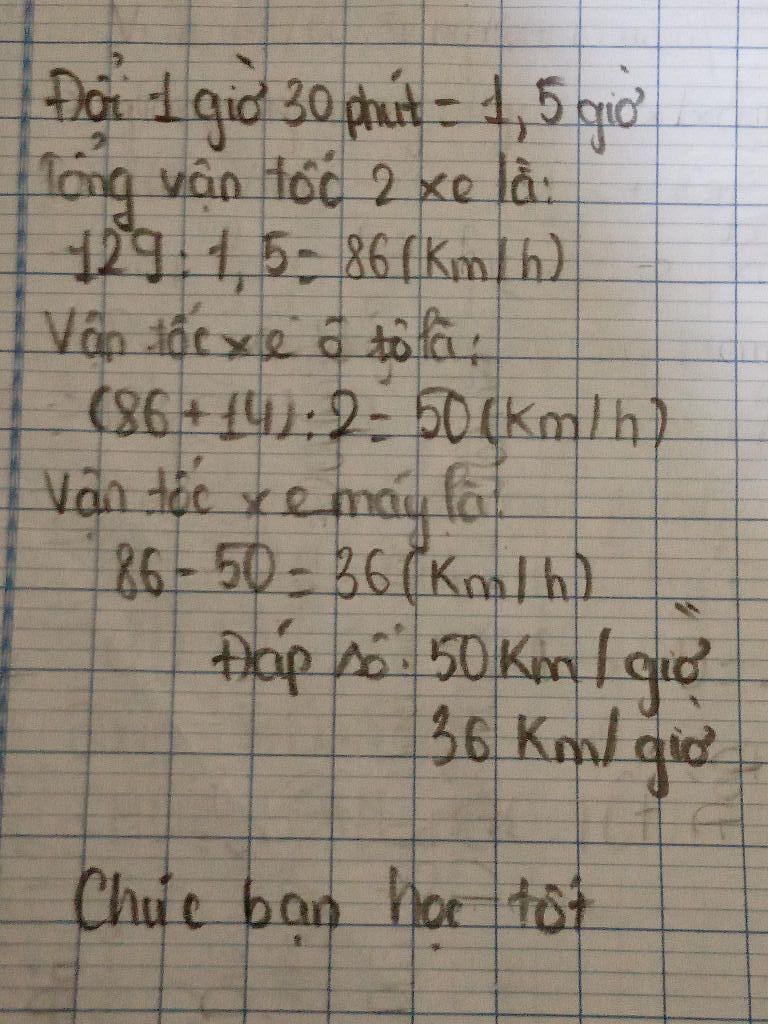 Đổi 1 giờ 30 phút = 1,5 giờ
Tổng vận tốc 2 xe là:
129 : 1,5 = 86 (Km/h)
Vận tốc xe ô tô là:
(86 + 14) : 2 = 50 (Km/h)
Vận tốc xe máy là:
86 - 50 = 36 (Km/h)
Đáp số: 50 Km/giờ
36 Km/giờ
Chúc bạn học tốt